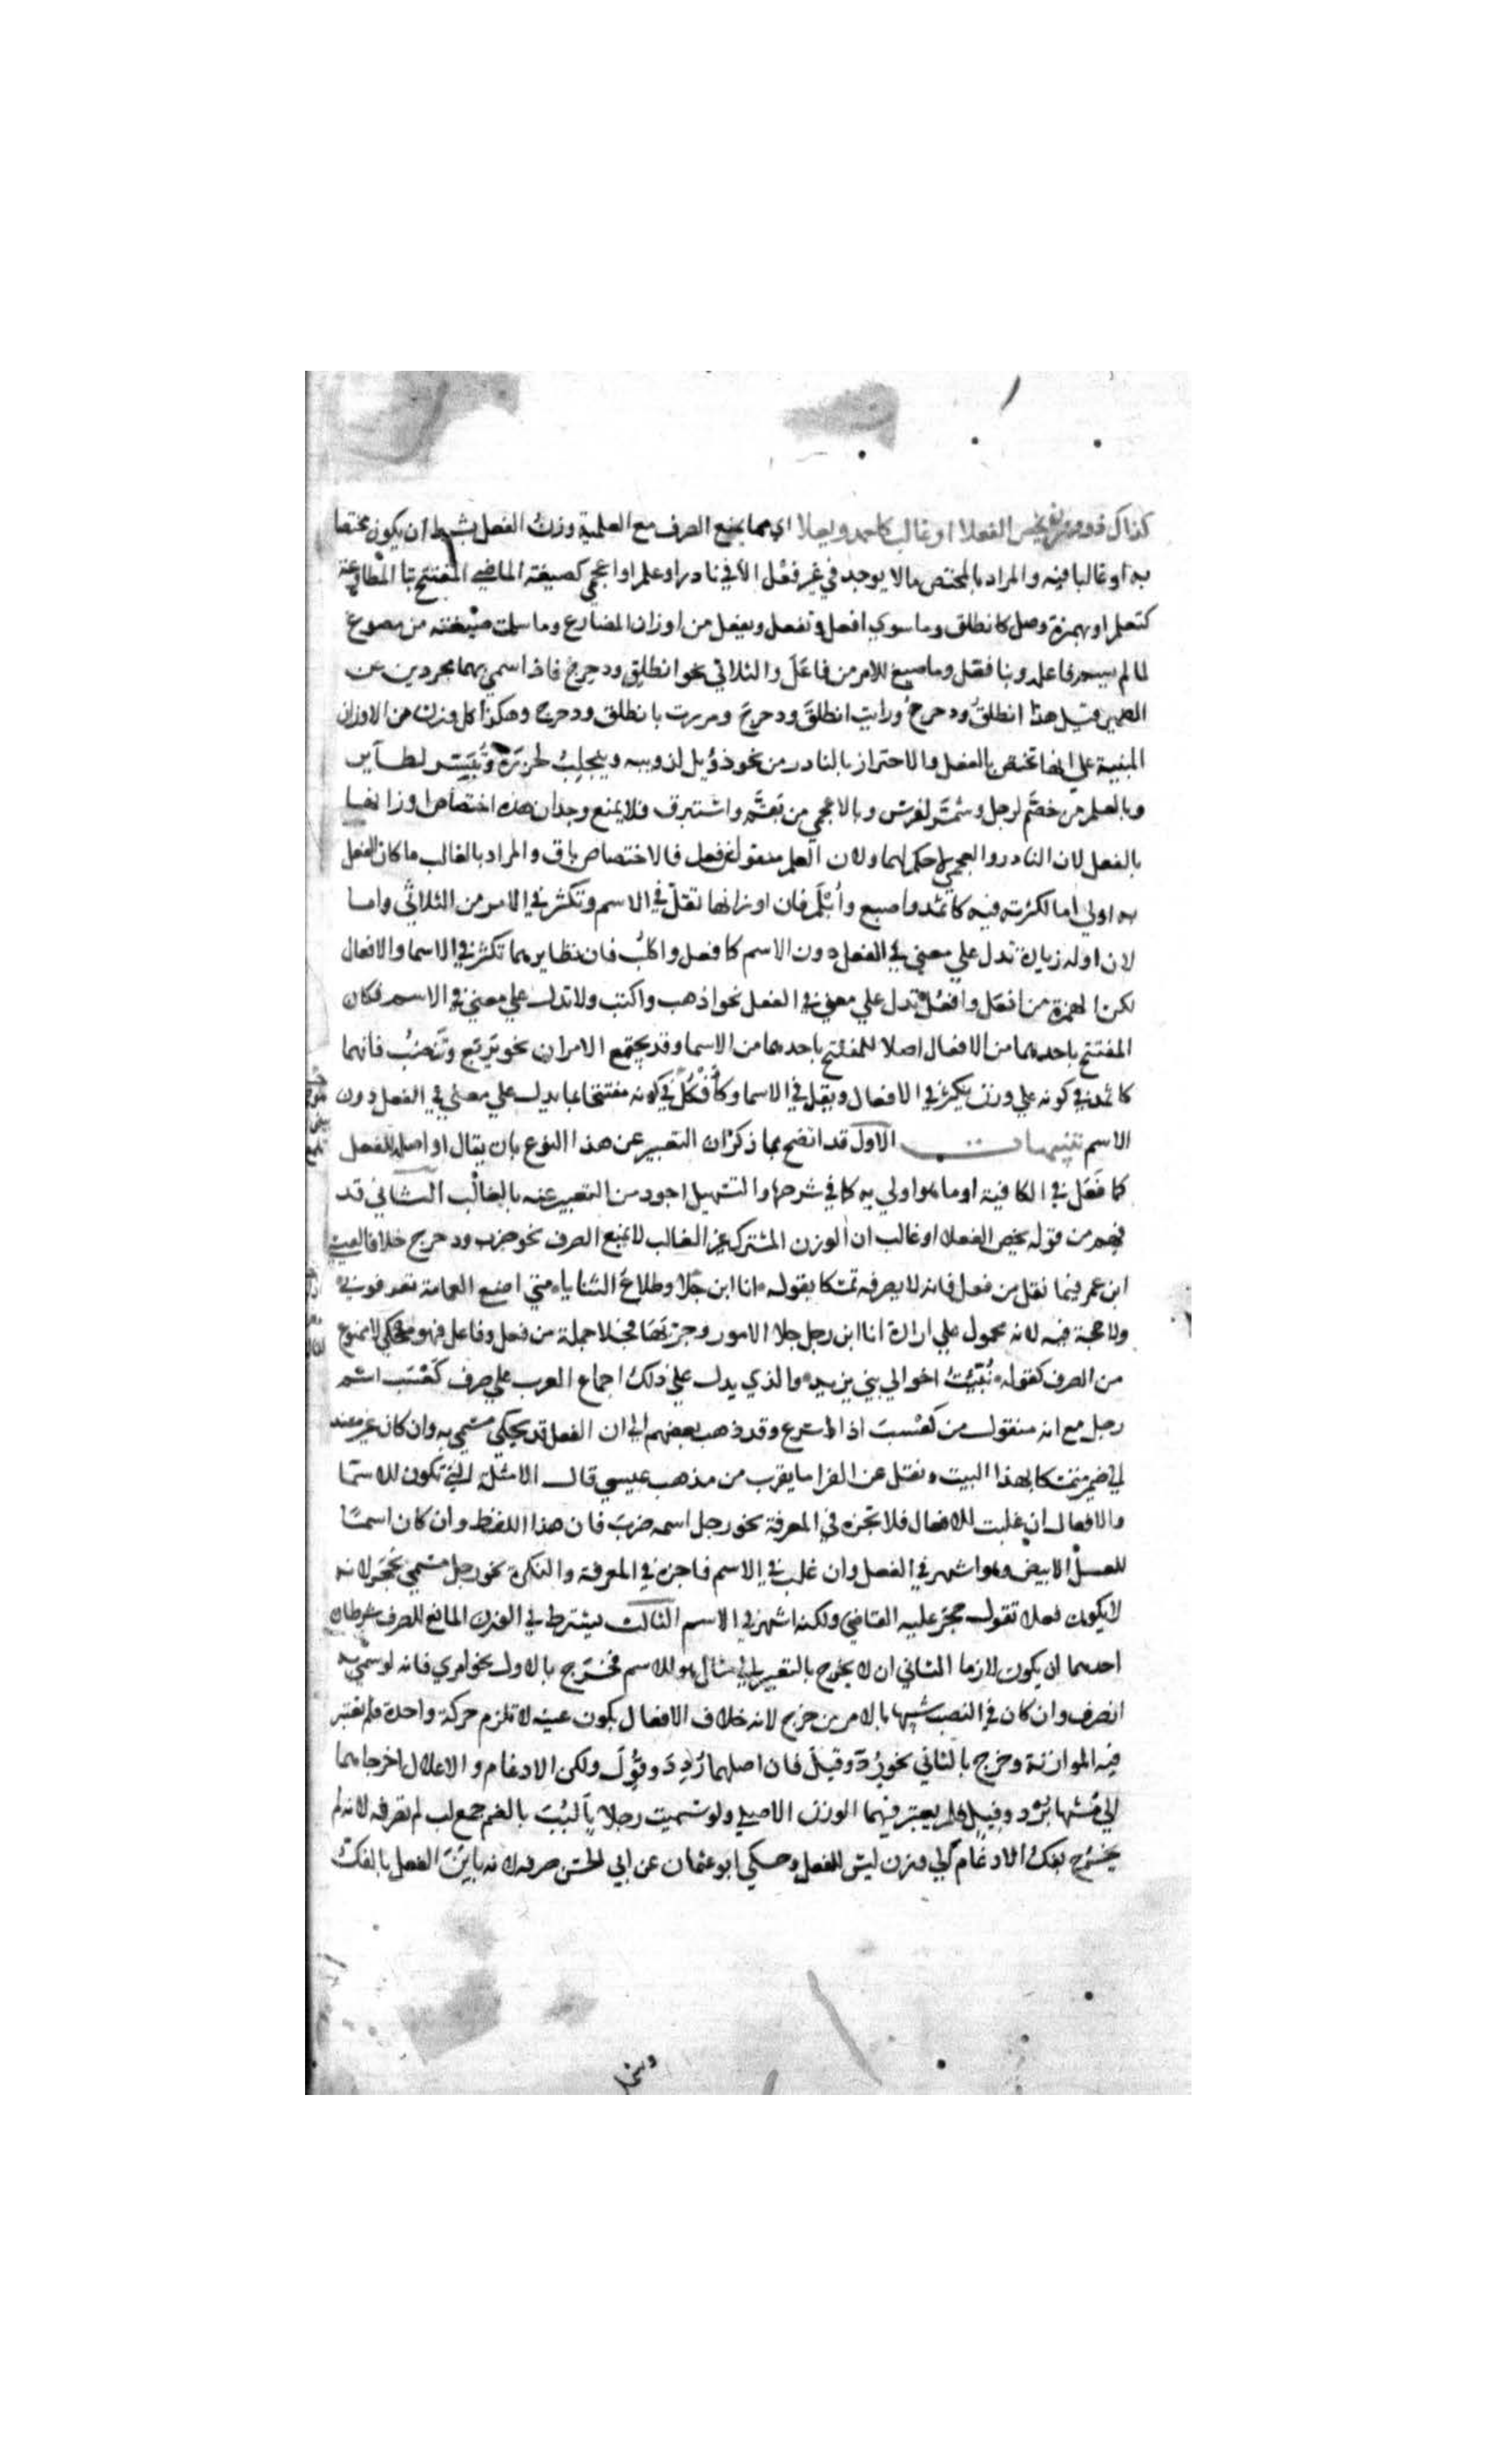 كذاك ذو وزن يخص الفعلا او غالب كاحمد ويعلا اي مما يمنع الصرف مع العلمية وزن الفعل بشرط ان يكون مختصا
به او غالبا فيه والمراد بالمختص ما لا يوجد في غير فعل الا في نادر او علم او اعجمي كصيغة الماضي المفتتح بتا المطاوعة
كتعلم او بهمزة وصل كانطلق وما سوي افعل وتفعل ويفعل من اوزان المضارع وما سلمت صيغته من مصوغ
لما لم يسم فاعله وبنا فعّل وما صيغ للامر من فاعَلَ والثلاثي نحو انطلِق ودحرِج فاذا سمي بهما مجردين عن
الضمير قيل هذا انطلقُ ودحرجُ ورايت انطلقَ ودحرجَ ومررت بانطلق ودحرج وهكذا كل وزن من الاوزان
المبنية علي انها تختص بالفعل والاحتراز بالنادر من نحو دُئِل لدويبه وينجلِبُ لخرزة وتُبُشِّر لطاير
وبالعلم من خضّم لرجل وشمّر لفرس وبالاعجمي من بقّم واستبرق فلا يمنع وجدان هذه اختصاص اوزانها
بالفعل لان النادر والعجمي لا حكم لهما ولان العلم منقول من فعل فالاختصاص باق والمراد بالغالب ما كان الفعل
به اولي اما لكثرته فيه كاثمد واصبع وأُبْلُم فان اوزانها تقلّ في الاسم وتكثر في الامر من الثلاثي واما
لان اوله زيادة تدل علي معني في الفعل دون الاسم كافعل واكلُب فان نظايرهما تكثر في الاسما والافعال
لكن الهمزة من افعَل وافعُل تدل علي معني في الفعل نحو اذهب واكتب ولا تدل علي معني في الاسم فكان
المفتتح باحدهما من الافعال اصلا للمفتتح باحدهما من الاسما وقد يجتمع الامران نحو يَرمَع وتَنضُب فانهما
كاثمد في كونه علي وزن يكثر في الافعال ويقل في الاسما وكأَفْكَل في كونه مفتتحا بما يدل علي معني في الفعل دون
الاسم تنبيهات الاول قد اتضح بما ذكر ان التعبير عن هذا النوع بان يقال او اصله للفعل
كما فَعَل في الكافية او ما هو اولي به كما في شرحها والتسهيل اجود من التعبير عنه بالغالب الثاني قد
فهم من قوله يخص الفعلا او غالب ان الوزن المشترك غير الغالب لا يمنع الصرف نحو ضرب ودحرج خلافا لعيسي
ابن عمر فيما نقل من فعل فانه لا يصرفه تمسكا بقوله انا ابن جَلا وطلاع الثنايا متي اضع العمامة تعرفوني
ولا حجة فيه لانه محمول علي ارادة انا ابن رجل جلا الامور وجرّبها فجلا جملة من فعل وفاعل فهو محكي لا ممنوع
من الصرف كقوله نُبِّئتُ اخوالي بني يزيد والذي يدل علي ذلك اجماع العرب علي صرف كَعْسَب اسم
رجل مع انه منقول من كَعْسَبَ اذا اسرع وقد ذهب بعضهم الي ان الفعل قد يحكي مسمي به وان كان غير مسند
الي ضمير متمسكا بهذا البيت ونقل عن الفرا ما يقرب من مذهب عيسي قال الامثلة التي تكون للاسما
والافعال ان غلبت للافعال فلا تجره في المعرفة نحو رجل اسمه ضرب فان هذا اللفظ وان كان اسمًا
للعسل الابيض وهو اشهر في الفعل وان غلب في الاسم فاجره في المعرفة والنكرة نحو رجل مسمي بحَجَر لانه
لا يكون فعلا تقول حجَر عليه القاضي ولكنه اشهر في الاسم الثالث يشترط في الوزن المانع للصرف شرطان
احدهما ان يكون لازما الثاني ان لا يخرج بالتغيير الي مثال هو للاسم فخرج بالاول نحو امري فانه لو سمي به
انصرف وان كان في النصب شبيها بالامر من جزع لانه خلاف الافعال بكون عينه لا تلزم حركة واحدة فلم تعتبر
فيه الموازنة وخرج بالثاني نحو رُدّ وقيل فان اصلهما رُدِدَ وقُوِلَ ولكن الادغام والاعلال اخرجاهما
الي مشابهة بُرْد وفيل فلم يعتبر فيهما الوزن الاصلي ولو سميت رجلا بأَلبُبَ بالضم جمع لب لم تصرفه لانه لم
يخرج بفك الادغام الي وزن ليس للفعل وحكي ابو عثمان عن ابي الحسن صرفه لانه باين الفعل بالفك